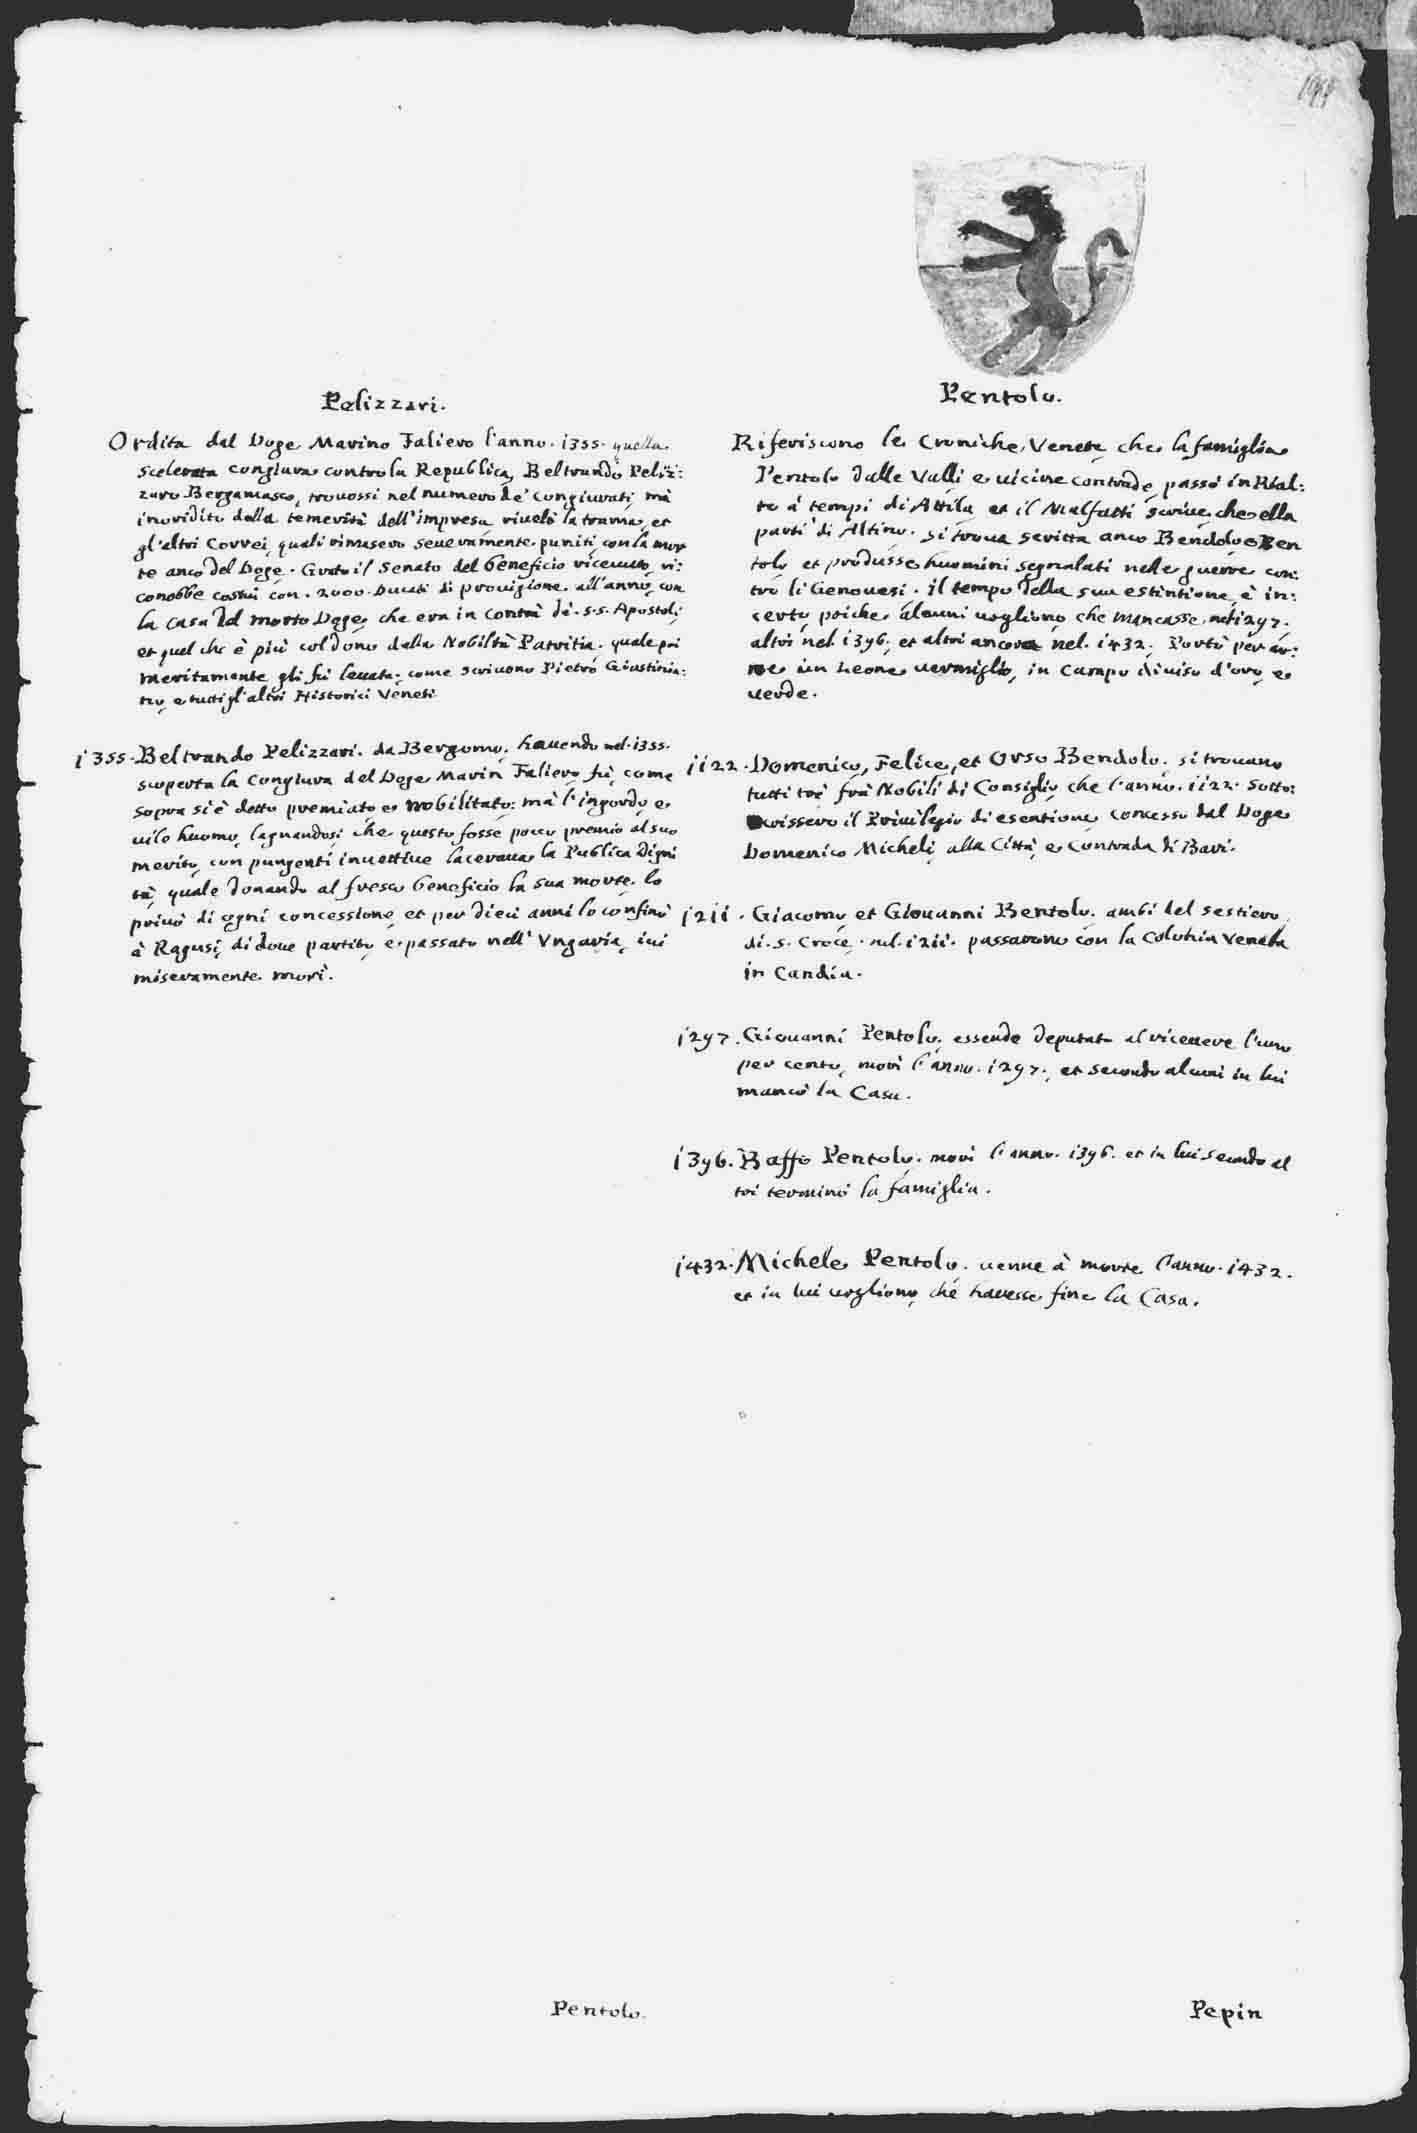 Pelizzari.
Ordita dal Doge Marino Faliero l'anno. 1355. quella
scelerata congiura contro la Republica, Beltrando Peliz:
zaro Bergamasco, trovossi nel numero de' congiurati, mà
inoridito della temerità dell'impresa rivelò la trama, et
gl'altri Correi, quali rimasero severamente puniti, con la mor
te anco del Doge. Grato il Senato del beneficio ricevuto, ri:
conobbe costui con. 2000. Ducati di provigione. all'anno, con
la casa del morto Doge, che era in Contrà de'. S.S. Apostoli,
et quel che è più col dono della Nobiltà Patritia. quale poi
meritamente gli fù levata; come scrivono Pietro Giustinia:
no, e tutti gl'altri Historici Veneti
1355. Beltrando Pelizzari. da Bergomo. havendo nel. 1355.
scoperta la Congiura del Doge Marin Faliero, fù, come
sopra si è detto premiato e nobilitato: mà l'ingordo, e
vile huomo, lagnandosi che questo fosse poco premio al suo
merito, con pungenti invettive lacerava la Publica Digni
tà, quale donando al fresco beneficio la sua morte. lo
privò di ogni concessione, et per dieci anni lo confinò
à Ragusi, di dove partito, e passato nell'Vngaria, ivi
miseramente. morì.
Pentolo.
Riferiscono le Croniche Venete che la famiglia
Pentolo dalle Valli e vicine contrade, passò in Rial:
to à tempi di Attila, et il Malfatti scrive, che ella
partì di Altino. Si trova scritta anco Bendolo e Ben
tolo et produsse huomini segnalati nelle guerre con:
tro li Genovesi. il tempo della sua estintione è in:
certo, poiche alcuni vogliono, che mancasse. nel 1297.
altri nel. 1396. et altri ancora nel. 1432. Portò per ar:
me un Leone vermiglio, in campo diviso d'oro, e
verde.
1122. Domenico, Felice, et Orso Bendolo. si trovano
tutti trè frà Nobili di Consiglio, che l'anno. 1122. Sotto:
scrissero il Privilegio di esentione, concesso dal Doge
Domenico Micheli, alla Città, e Contrada di Bari.
1211. Giacomo, et Giovanni Bentolo. ambi del sestiero.
di. S. Croce. nel. 1211. passarono con la Colonia Veneta
in Candia.
1297. Giovanni Pentolo, essendo deputato al ricevere l'uno
per cento, morì l'anno. 1297., et secondo alcuni in lui
mancò la Casa.
1396. Baffo Pentolo. morì l'anno. 1396. et in lui secondo al
tri terminò la famiglia.
1432. Michele Pentolo. venne à morte l'anno. 1432.
et in lui vogliono, che havesse fine la Casa.
Pentolo.
Pepin